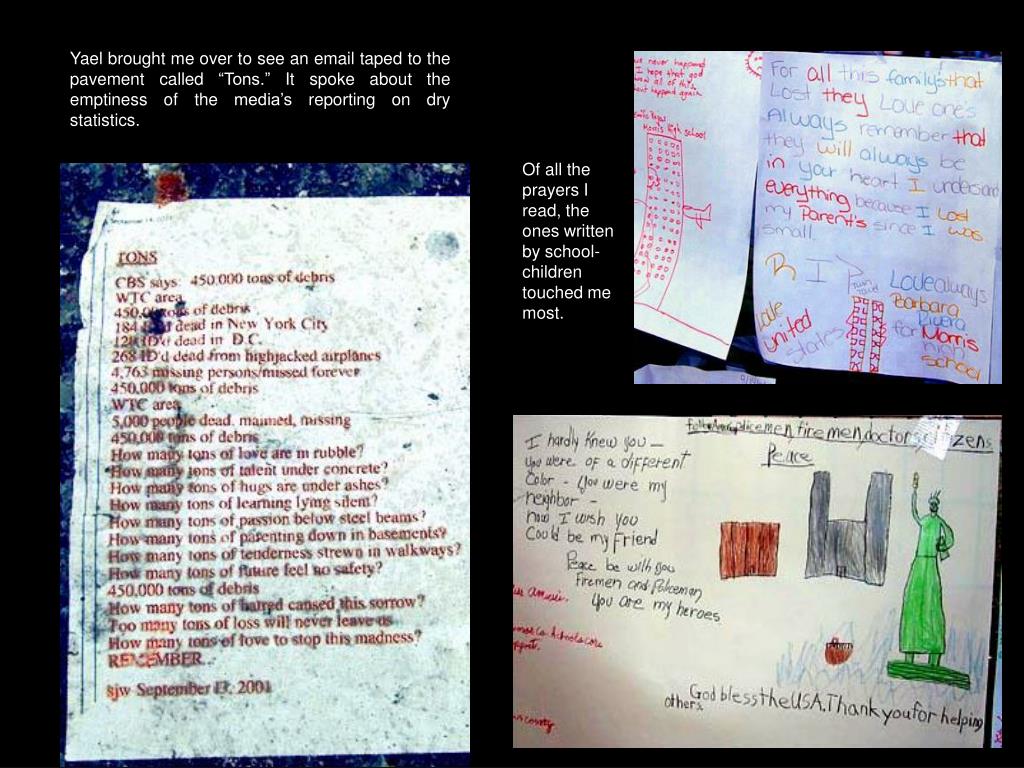 Yael brought me over to see an email taped to the
pavement called “Tons.” It spoke about the
emptiness of the media’s reporting on dry
statistics.
TONS
CBS says: 450,000 tons of debris
WTC area
450,000 tons of debris
184 ID'd dead in New York City
dead in D.C.
268 ID'd dead from highjacked airplanes
4,763 missing persons/missed forever
450,000 tons of debris
WTC area
5,000 people dead, maimed, missing
450,000 tons of debris
How many tons of love are in rubble?
How many tons of talent under concrete?
How many tons of hugs are under ashes?
How many tons of learning lying silent?
How many tons of passion below steel beams?
How many tons of parenting down in basements?
How many tons of tenderness strewn in walkways?
How many tons of future feel no safety?
450,000 tons of debris
How many tons of hatred caused this sorrow?
Too many tons of loss will never leave us
How many tons of love to stop this madness?
REMEMBER...
sjw September 2001
Of all the
prayers I
read, the
ones written
by school-
children
touched me
most.
never happened
I hope that god
all of this
happend again
Morris High school
For all this family's that
Lost they Love one's
Always remember that
they will always be
in your heart I understand
everything because I Lost
my Parent's since I was
small.
R I P
Love always
Barbara
Rivera
for Morris
high
school
Love
united
states
policemen, firemen, doctors, citizens
Peace
I hardly knew you —
you were of a different
Color - you were my
neighbor -
now I wish you
Could be my friend
Peace be with you
Firemen and Policeman
You are my heroes
God bless the USA. Thank you for helping
others.